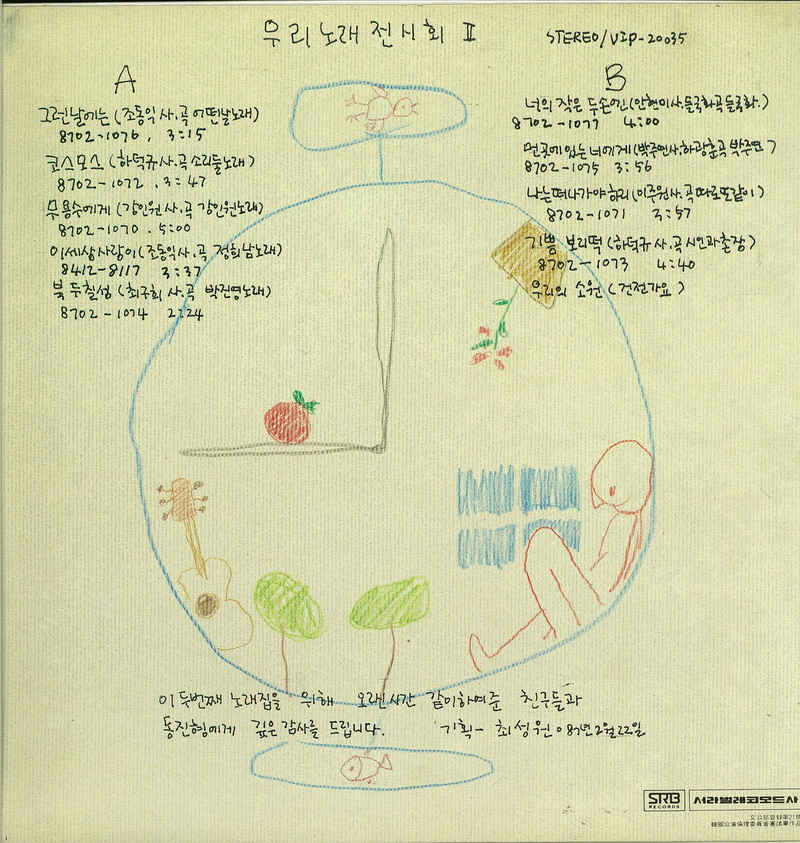 우리노래전시회 II
STEREO/VIP-20035
A
그런날에는 (조동익 사.곡 어떤날노래)
8702-1076, 3:15
코스모스 (하덕규 사.곡 소리들노래)
8702-1072. 3:47
무용수에게 (강인원 사.곡 강인원노래)
8702-1070. 5:00
이세상사랑이 (조동익사.곡 정희남노래)
8412-8117 3:37
북두칠성 (최구희 사.곡 박진영노래)
8702-1074 2:24
B
너의 작은 두손엔 (안현미사.들국화곡들국화.)
8702-1077 4:00
먼곳에있는너에게 (박주연사.하광훈곡 박주연)
8702-1075 3:56
나는떠나가야하리 (이주원사.곡 따로또같이)
8702-1071 3:57
기쁨 보리떡 (하덕규 사.곡 시인과촌장)
8702-1073 4:40
우리의 소원 (건전가요)
이 두번째 노래집을 위해 오랜시간 같이하여준 친구들과
동진형에게 깊은감사를 드립니다. 기획- 최성원 87년2월22일
SRB
RECORDS
서라벌레코오드사
文公部登録第21號
韓國公演倫理委員會審議畢作品